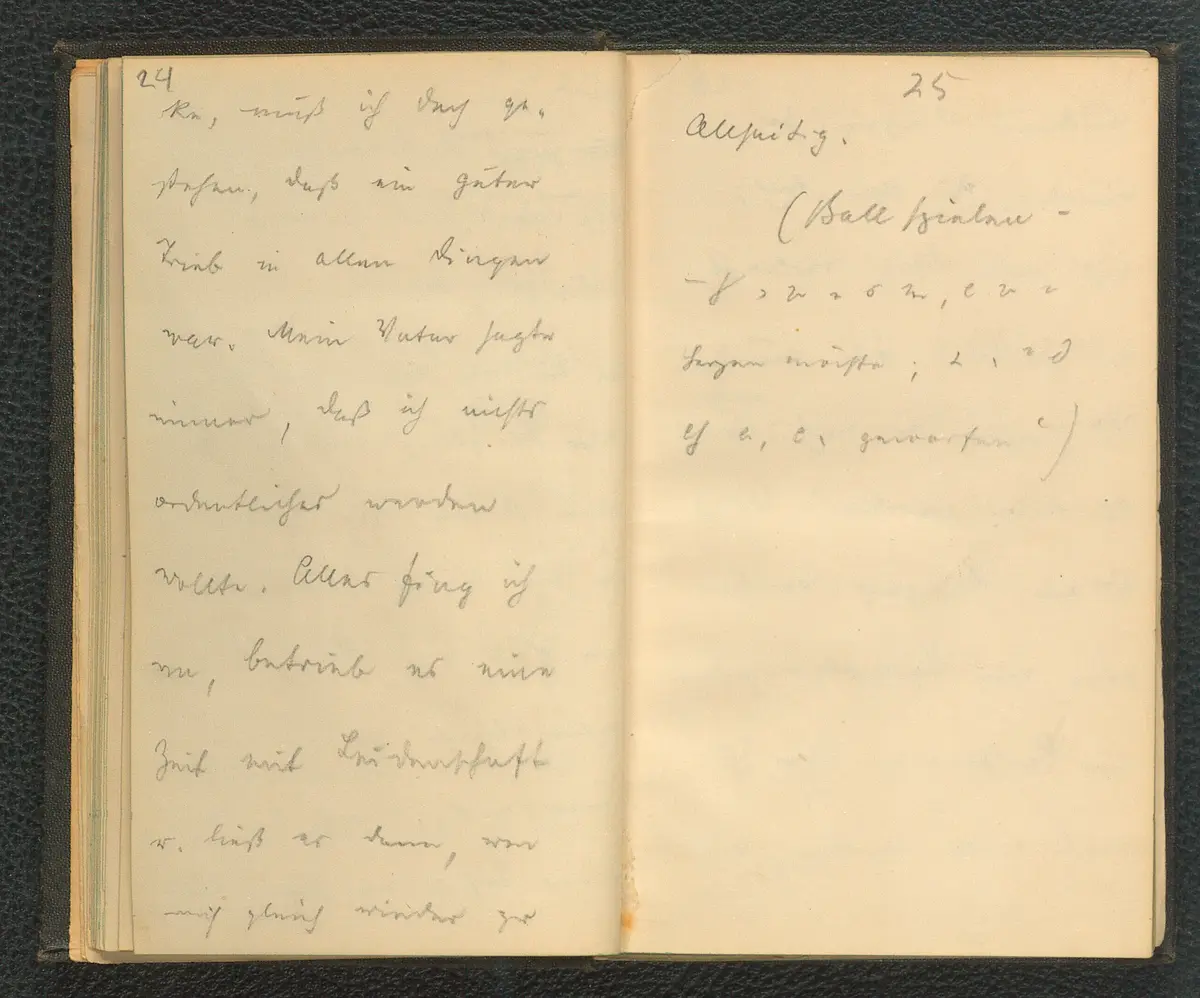 24
ke, muß ich doch ge-
stehen, daß ein guter
Trieb in allen Dingen
war. Mein Vater sagte
immer, daß ich nichts
ordentliches werden
wollte. Alles fing ich
an, betrieb es eine
Zeit mit Leidenschaft
u. ließ es dann, um
mich gleich wieder zu
25
Allseitig.
(Ball spielen -
möchte;
geworfen)